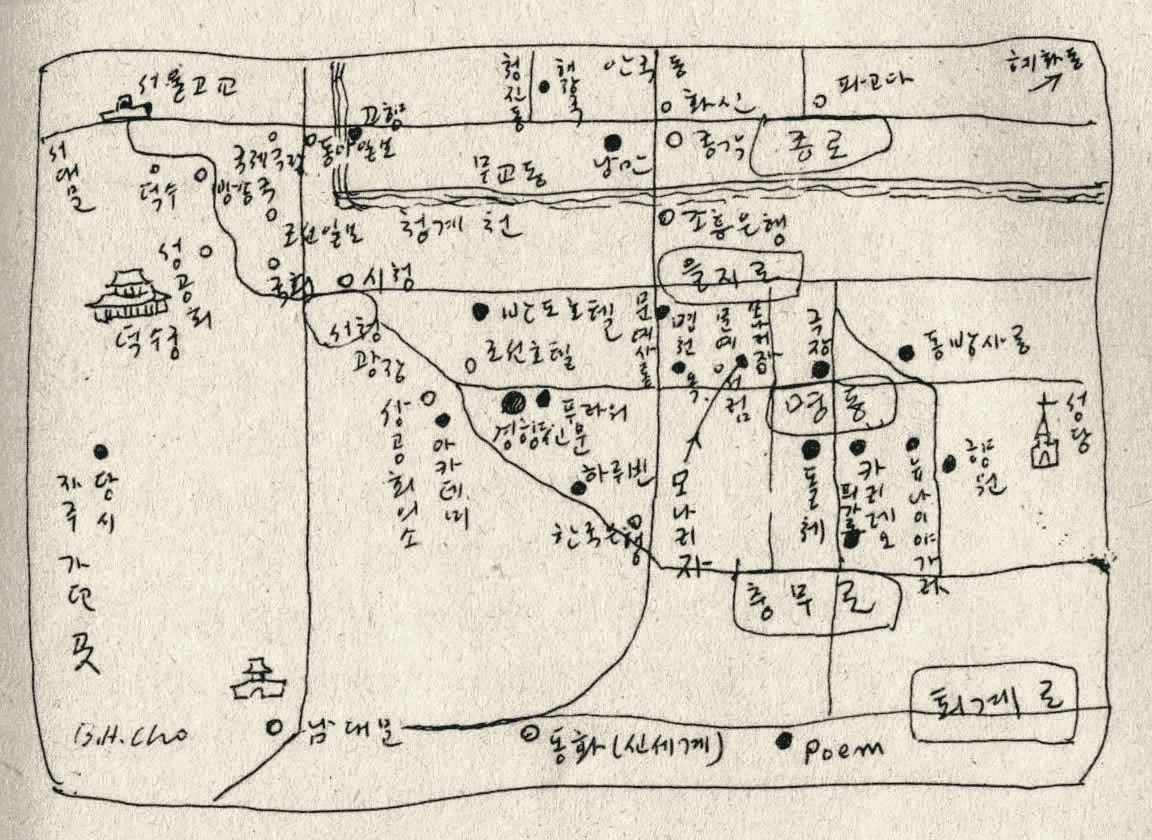 서울고교
청진동
해장국
안국동
화신
파고다
혜화동
서대문
덕수
국제극장
동아일보
고향
방송국
무교동
낭만
종각
종로
조선일보
청계천
조흥은행
성공회
국회
시청
덕수궁
을지로
시청
광장
반도호텔
조선호텔
문예사롱
명천옥
문예서점
극장
동방사롱
명동
성당
상공회의소
아카데미
경향신문
푸라워
하루빈
한국은행
모나리자
돌체
피가로
카리레오
뉴나이야가라
향원
당시
자주 가던 곳
충무로
퇴계로
B.H.Cho
남대문
동화(신세계)
Poem